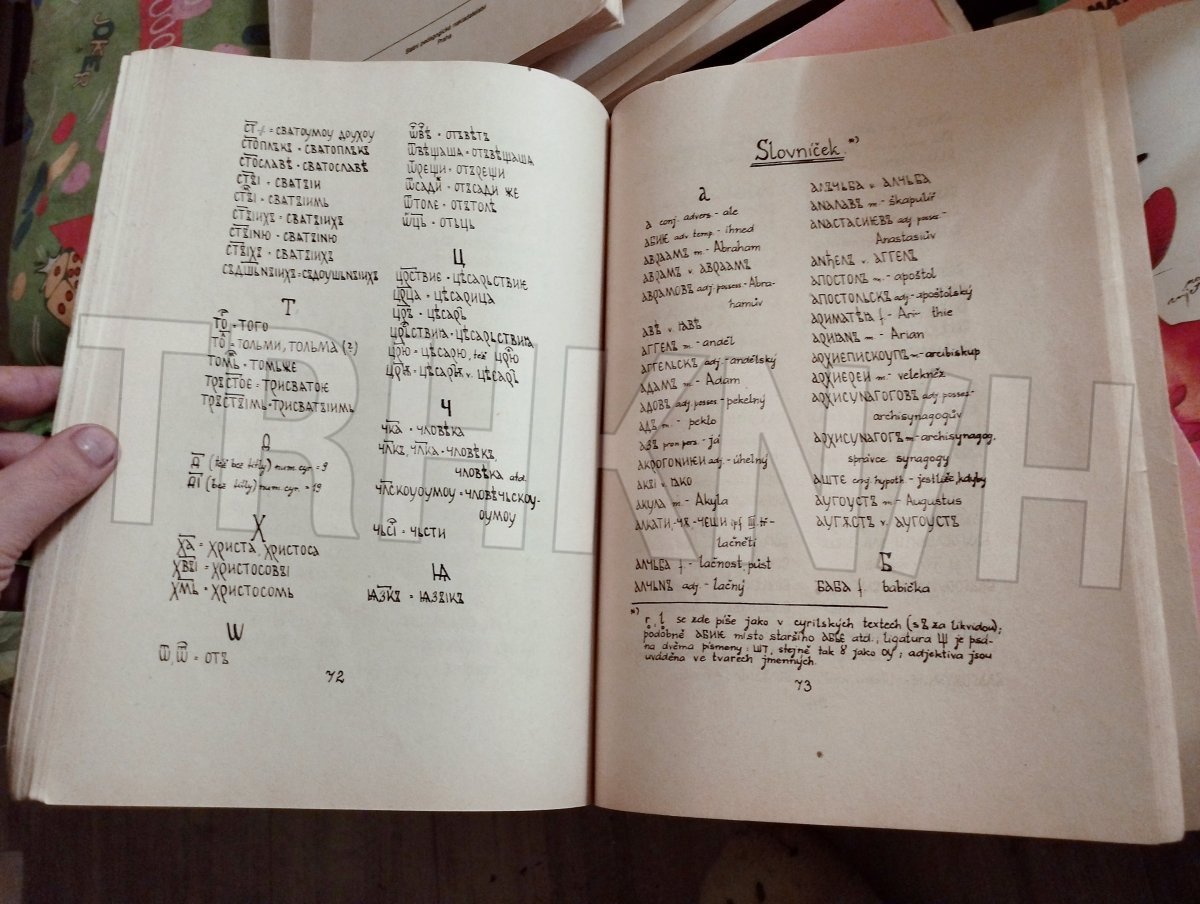 JOKER
Státní pedagogické nakladatelství
Praha
MA
= сватоумоу доухоу
стоплъкъ • сватоплъкъ
стославѣ • сватославѣ
ствꙑ • сватꙑи
• сватꙑимь
ствꙑихъ = сватꙑихъ
ствꙑню • сватꙑню
ствꙑхъ • сватꙑихъ
съдшьнꙑихъ • съдоушьнꙑихъ
Т
то • того
то = тольми, тольма (?)
томь • томьже
трьстоѥ • трисватоѥ
• трисватꙑимь
(též bez titly) num. cyr. = 9
(bez titly) num. cyr. = 19
Х
ха = христа, христоса
хвꙑ = христосовꙑ
хмь • христосомь
Ѡ
ѿ, ѿ = отъ
72
ѿвѣ • отъвѣтъ
ѿвѣщаша • отъвѣщаша
ѿрещи • отърещи
ѿсади • отъсади же
ѿтоле • отътолѣ
ѿць • отьць
Ц
црствиѥ • цѣсарьствиѥ
црца • цѣсарица
црь • цѣсарь
црьствиꙗ • цѣсарьствиꙗ
црю = цѣсарю, též црю
• цѣсарѣ v. цѣсарь
Ч
чка • чловѣка
члкъ, члка • чловѣкъ,
чловѣка atd.
члскоуоумоу = чловѣчьскоу-
оумоу
чьсі • чьсти
Ꙗ
ꙗзкъ • ꙗзꙑкъ
Slovníček *)
а
а conj. advers - ale
абиѥ adv temp - ihned
авраамъ m. - Abraham
аврамъ v. авраамъ
аврамовъ adj possess - Abra-
hamův
авѣ v. ꙗвѣ
аггелъ m. - anděl
аггельскъ adj. - andělský
адамъ m. - Adam
адовъ adj. possess - pekelný
адъ m. - peklo
азъ pron pers. - já
акрогониѥи adj. - úhelný
акꙑ v. ꙗко
акула m. - Akyla
алкати, -чѫ -чеши ipf III. tř. -
lačněti
алчьба f. - lačnost, půst
алчьнъ adj - lačný
алъчьба v. алчьба
аналавъ m - škapulíř
анастасиѥвъ adj possess -
Anastasiův
анђелъ v. аггелъ
апостолъ m. - apoštol
апостольскъ adj. - apoštolský
ариматѣꙗ f. - Arimathie
m. - Arian
архиепископъ m. - arcibiskup
архиереи m. - velekněz
архисунагоговъ adj possess -
archisynagogův
архисунагогъ m. - archisynagog,
správce synagogy
аште conj. hypoth. - jestliže, kdyby
аугоустъ m - Augustus
аугѫстъ v. аугоустъ
Б
баба f. babička
*) r̥, l̥ se zde píše jako v cyrilských textech (s ъ za likvidou);
podobně абиѥ místo staršího абьѥ atd.; ligatura щ je psá-
na dvěma písmeny: шт, stejně tak ꙋ jako оу; adjektiva jsou
uváděna ve tvarech jmenných.
73
TRHKNIH